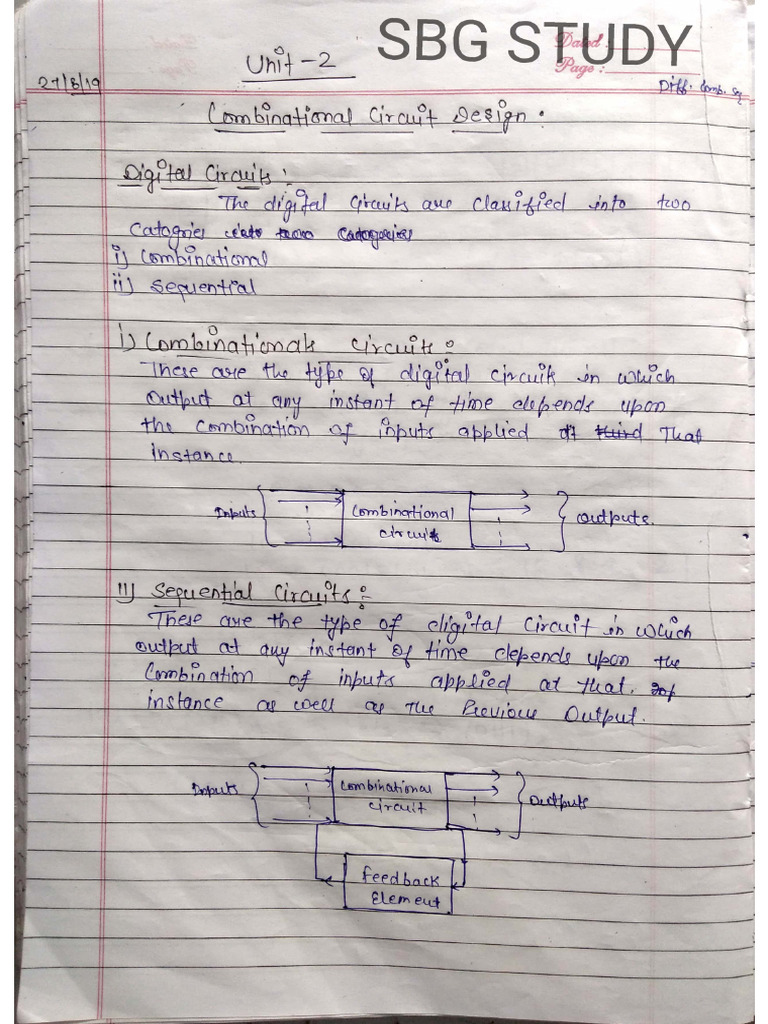 SBG STUDY
Dated :
Page :
Unit - 2
27/8/19
Diff. Comb. Seq
Combinational Circuit Design :
Digital Circuits :
The digital Circuits are Classified into two
Catagries into two Catagories
i) Combinational
ii) Sequential
i) Combinationals Circuits :
These are the type of digital circuits in which
Output at any instant of time depends upon
the Combination of inputs applied at third That
instance.
Inputs
Combinational
Circuits
Outputs.
ii) Sequential Circuits :-
These are the type of digital Circuit in which
output at any instant of time depends upon the
Combination of inputs applied at that.
instance as well as The Previous Output.
Inputs
Combinational
Circuit
Outputs
feedback
Element